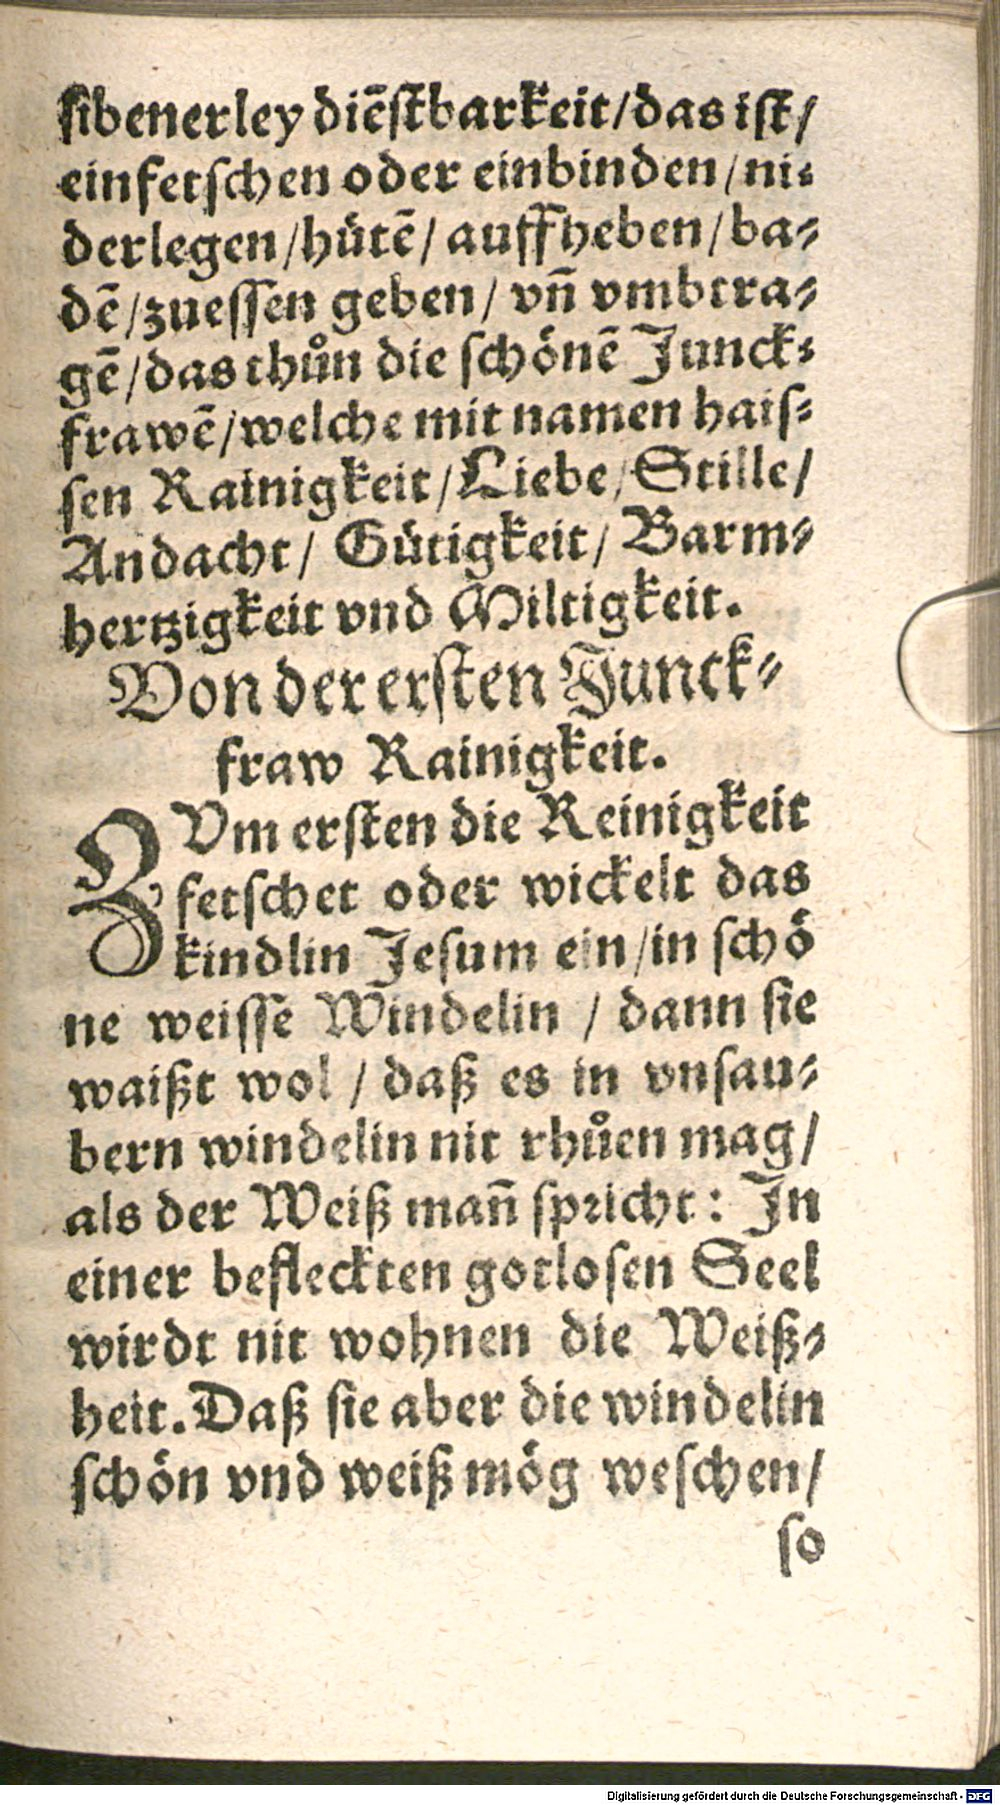 ſibenerley diēſtbarkeit/das iſt/
einfetſchen oder einbinden/ni⸗
derlegen/hütē/auffheben/ba⸗
dē/zueſſen geben/vn̄ vmbtra⸗
gē/das thůn die ſchönē Junck⸗
frawē/welche mit namen haiſ⸗
ſen Rainigkeit/Liebe/Stille/
Andacht/Gütigkeit/Barm⸗
hertzigkeit vnd Miltigkeit.
Von der erſten Junck⸗
fraw Rainigkeit.
ZVm erſten die Reinigkeit
fetſchet oder wickelt das
kindlin Jeſum ein/in ſchö
ne weiſſe Windelin / dann ſie
waißt wol / daß es in vnſau⸗
bern windelin nit rhůen mag/
als der Weiß man̄ ſpricht: In
einer befleckten gotloſen Seel
wirdt nit wohnen die Weiß⸗
heit. Daß ſie aber die windelin
ſchön vnd weiß mög weſchen/
ſo
Digitalisierung gefördert durch die Deutsche Forschungsgemeinschaft - DFG